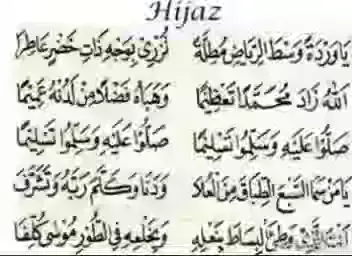 Hijaz
يَا وَرْدَةً وَسْطَ الرِّيَاضِ مُطِلَّةً تُزْرِيْ بِوَجْهٍ ذَاتِ خَضْرٍ عَاطِرًا
اَللهُ زَادَ مُحَمَّدًا تَعْظِيْمًا وَحَبَاهُ فَضْلًا مِنْ لَدُنْهُ عَمِيْمًا
صَلُّوْا عَلَيْهِ وَسَلِّمُوْا تَسْلِيْمًا صَلُّوْا عَلَيْهِ وَسَلِّمُوْا تَسْلِيْمًا
يَا مَنْ سَمَا السَّبْعَ الطِّبَاقَ مِنَ الْعُلَا وَدَنَا وَكَلَّمَ رَبَّهُ وَتَشَرَّفَ
اَنْتَ الَّذِيْ وَطِئَ الْبِسَاطَ بِنَعْلِهِ وَبِخَلْعِهِ فِي الطُّوْرِ مُوْسَى كُلِّفَا